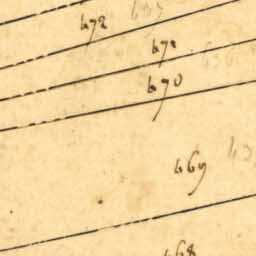 672
671
670
669
668